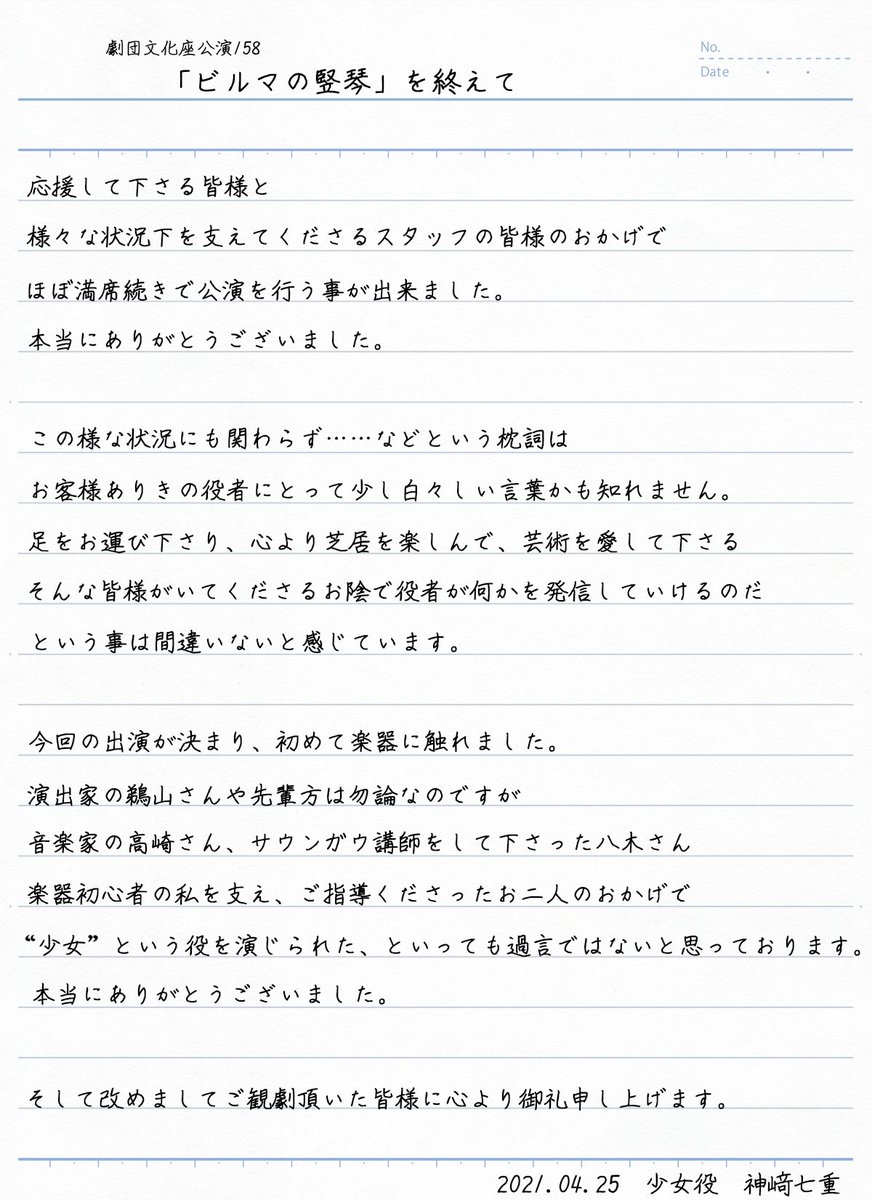 劇団文化座公演158
「ビルマの竪琴」を終えて
No.
Date ・ ・
応援して下さる皆様と
様々な状況下を支えてくださるスタッフの皆様のおかげで
ほぼ満席続きで公演を行う事が出来ました。
本当にありがとうございました。
この様な状況にも関わらず……などという枕詞は
お客様ありきの役者にとって少し白々しい言葉かも知れません。
足をお運び下さり、心より芝居を楽しんで、芸術を愛して下さる
そんな皆様がいてくださるお陰で役者が何かを発信していけるのだ
という事は間違いないと感じています。
今回の出演が決まり、初めて楽器に触れました。
演出家の鵜山さんや先輩方は勿論なのですが
音楽家の高崎さん、サウンガウ講師をして下さった八木さん
楽器初心者の私を支え、ご指導くださったお二人のおかげで
“少女”という役を演じられた、といっても過言ではないと思っております。
本当にありがとうございました。
そして改めましてご観劇頂いた皆様に心より御礼申し上げます。
2021.04.25 少女役 神﨑七重